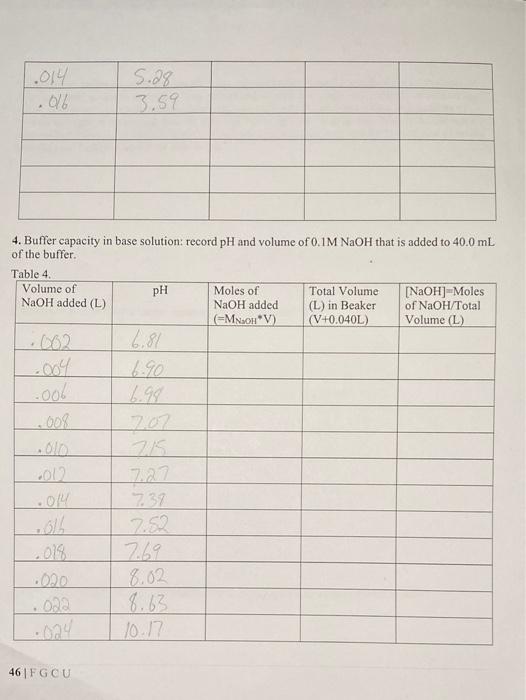 .014 5.28
.016 3.59
4. Buffer capacity in base solution: record pH and volume of 0.1M NaOH that is added to 40.0 mL
of the buffer.
Table 4.
Volume of NaOH added (L) pH Moles of NaOH added (=MNaOH*V) Total Volume (L) in Beaker (V+0.040L) [NaOH]=Moles of NaOH/Total Volume (L)
.002 6.81
.004 6.90
.006 6.98
.008 7.07
.010 7.15
.012 7.27
.014 7.39
.016 7.52
.018 7.69
.020 8.02
.022 8.63
.024 10.17
46 | F G C U